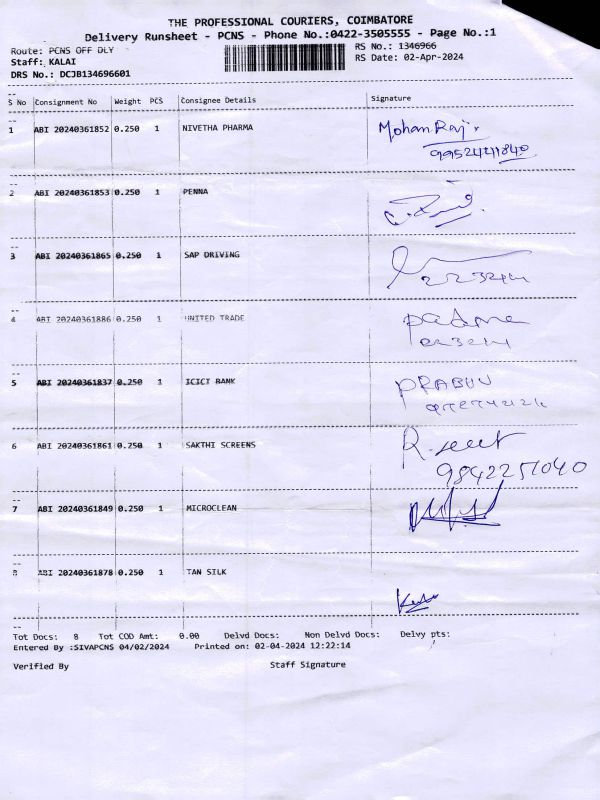 THE PROFESSIONAL COURIERS, COIMBATORE
Delivery Runsheet - PCNS - Phone No.:0422-3505555 - Page No.:1
Route: PCNS OFF DLY RS No.: 1346966
Staff: KALAI RS Date: 02-Apr-2024
DRS No.: DCJB134696601
S No Consignment No Weight PCS Consignee Details Signature
1 ABI 20240361852 0.250 1 NIVETHA PHARMA Mohan Raj
2 ABI 20240361853 0.250 1 PENNA
3 ABI 20240361865 0.250 1 SAP DRIVING
4 ABI 20240361886 0.250 1 UNITED TRADE Padma
5 ABI 20240361837 0.250 1 ICICI BANK PRABUV
6 ABI 20240361861 0.250 1 SAKTHI SCREENS
9842251040
7 ABI 20240361849 0.250 1 MICROCLEAN
8 ABI 20240361878 0.250 1 TAN SILK
Tot Docs: 8 Tot COD Amt: 0.00 Delvd Docs: Non Delvd Docs: Delvy pts:
Entered By :SIVAPCNS 04/02/2024 Printed on: 02-04-2024 12:22:14
Verified By Staff Signature